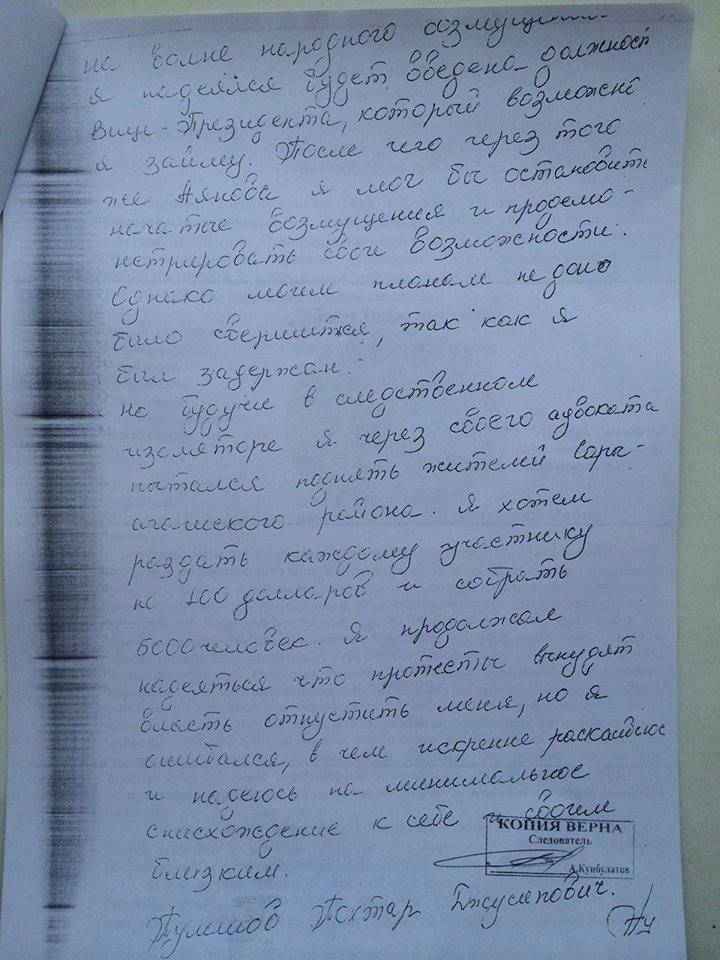 на волне народного возмущения
я надеялся будет введена должность
Вице-Президента, который возможно
я займу. После чего через того
же Аянова я мог бы остановить
начатые возмущения и продемо-
нстрировать свои возможности.
Однако моим планам не дано
было свершится, так как я
был задержан.
Но будучи в следственном
изоляторе я через своего адвоката
пытался поднять жителей Сары-
агашского района. Я хотел
раздать каждому участнику
по 100 долларов и собрать
5000 человек. Я продолжал
надеяться что протесты вынудят
власть отпустить меня, но я
ошибался, в чем искренне раскаиваюсь
и надеюсь на минимальное
снисхождение к себе и своим
близким.
КОПИЯ ВЕРНА
Следователь
А.Куибулатов
Тулешов Тохтар